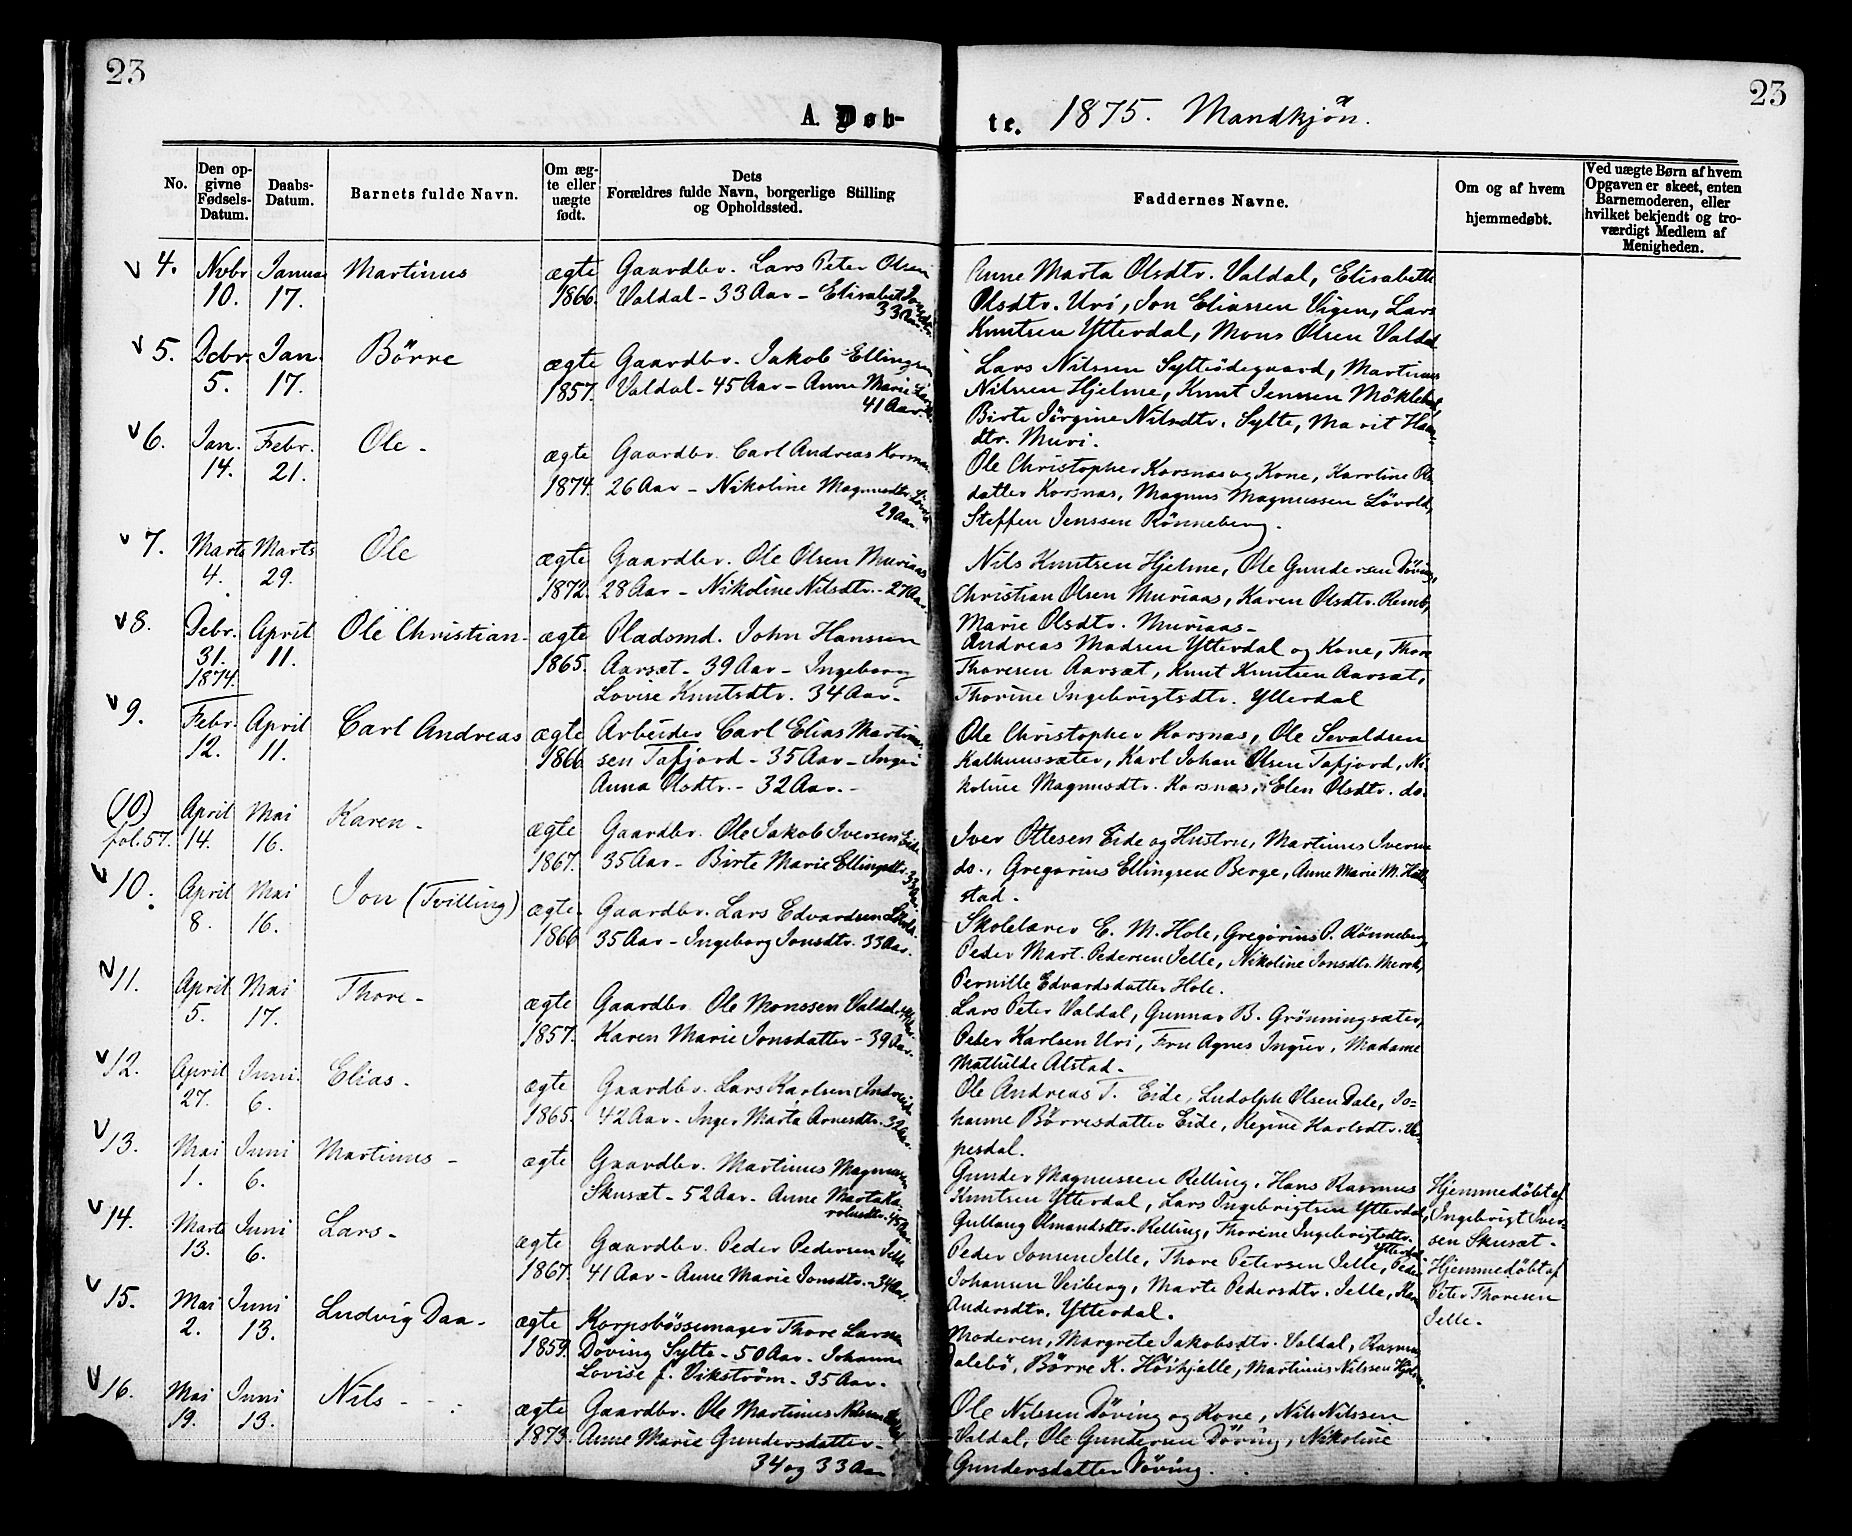 23
23
A. Døb-
te. 1875. Mandkjøn.
No.
Den op-
givne
Fødsels-
Datum.
Daabs-
Datum.
Barnets fulde Navn.
Om æg-
te eller
uægte
født.
Dets
Forældres fulde Navn, borgerlige Stilling
og Opholdssted.
Faddernes Navne.
Om og af hvem
hjemmedøbt.
Ved uægte Børn af hvem
Opgaven er skeet, enten
Barnemoderen, eller
hvilket bekjendt og tro-
værdigt Medlem af
Menigheden.
4. Novbr Januar Martinus ægte Gaardbr. Lars Peter Olsen
10. 17. 1866. Valdal - 33 Aar - Elisabet
33 Aar.
Anne Marta Olsdtr. Valdal, Elisabeth
Olsdtr. Uri, Jon Eliassen Vigen, Lars
Knutsen Ytterdal, Mons Olsen Valdal
5. Debr. Jan. Börre ægte Gaardbr. Jakob Ellingsen
5. 17. 1857. Valdal - 45 Aar - Anne Marie
41 Aar
Lars Nilssen Sylteödegaard, Martinus
Nilssen Hjelme, Knut Jenssen
Birte Jörgine Nilsdtr. Sylte, Marit
dtr. Muri.
6. Jan. Febr. Ole - ægte Gaardbr. Carl Andreas Korsnas
14. 21. 1874. 26 Aar - Nikoline Magnusdtr.
29 Aar
Ole Christopher Korsnas og Kone, Karoline Ols
datter Korsnas, Magnus Magnussen Lövold,
Steffen Jenssen Rönneberg.
7. Marts Marts Ole ægte Gaardbr. Ole Olsen Muriaas
4. 29. 1872. 28 Aar - Nikoline Nilsdtr. - 27 Aar.
Nils Knutsen Hjelme, Ole Gundersen Döving,
Christian Olsen Muriaas, Karen Olsdtr. Remb,
Marie Olsdtr. Muriaas -
8. Debr. April Ole Christian - ægte Pladsmd. John Hanssen
31. 11. 1865. Aarsæt - 39 Aar - Ingeborg
1874. Lovise Knutsdtr. 34 Aar -
Andreas Madsen Ytterdal og Kone, Thore
Thoresen Aarsæt, Knut Knutsen Aarsæt,
Thorine Ingebrigtsdtr. Ytterdal
9. Febr. April Carl Andreas ægte Arbeider Carl Elias Martinus-
12. 11. 1866 sen Tafjord - 35 Aar - Inger
Anna Olsdtr. - 32 Aar. -
Ole Christopher Korsnas, Ole Sevaldsen
Kalhussæter, Karl Johan Olsen Tafjord, Ni
koline Magnusdtr. Korsnas, Elen Olsdtr. do.
(10) April Mai Karen - ægte Gaardbr. Ole Jakob Iversen Eide
fol. 57. 14. 16. 1867. 35 Aar - Birte Marie Ellingsdtr. 33 Aar.
Iver Ottesen Eide og Hustru, Martinus Iversen
do., Gregorius Ellingsen Berge, Anne Marie M.
stad.
10. April Mai Jon (Tvilling) ægte - Gaardbr. Lars Edvardsen
8. 16. 1866 35 Aar - Ingeborg Jonsdtr. 33 Aar.
Skolelærer E. M. Hole, Gregorius P. Rönneberg,
Peder Mart. Pedersen Jelle, Nikoline Jonsdtr. Merok,
Pernille Edvardsdatter Hole.
11. April Mai Thore - ægte Gaardbr. Ole Monssen Valdal
5. 17. 1857. Karen Marie Jonsdatter - 39 Aar.
Lars Peter Valdal, Gunnar B. Grönningsæter,
Peder Karlsen Uri, Fru Agnes Ingier, Madame
Mathilde Alstad -
12. April Juni Elias - ægte Gaardbr. Lars Karlsen Indreeide
27. 6. 1865. 42 Aar - Inger Marta Arnesdtr. 32 Aar.
Ole Andreas T. Eide, Ludolph Olsen Dale, Jo-
hanne Börresdatter Eide, Regine Karlsdtr. Up-
pesdal.
13. Mai Juni Martinus - ægte Gaardbr. Martinus Magnussen
1. 6. Skusæt - 52 Aar - Anne Marta Ka-
rolusdtr. 45 Aar
Gunder Magnussen Relling, Hans Rasmus
Knutsen Ytterdal, Lars Ingebrigtsen Ytterdal,
Gullaug Amundsdtr. Relling, Thorine Ingebrigtsdtr.
Ytterdal
Hjemmedöbt af
Ingebrigt Iver-
sen Skusæt -
14. Marts Juni Lars - ægte Gaardbr. Peder Pedersen Jelle
13. 6. 1867. 41 Aar - Anne Marie Jonsdtr. - 34 Aar.
Peder Jonsen Jelle, Thore Petersen Jelle, Peder
Johansen Veiberg, Marte Pedersdtr. Jelle,
Andersdtr. Ytterdal.
Hjemmedöbt af
Peter Thoresen
Jelle -
15. Mai Juni Ludvig Daa - ægte Korpsbössemager Thore Larsen
2. 13. 1859. Döving Sylte - 50 Aar - Johanne
Lovise f. Vikström - 35 Aar.
Moderen, Margrete Jakobsdtr. Valdal, Rasmus
Dalebö, Börre K. Höihjelle, Martinus Nilssen Hjelme
16. Mai Juni Nils - - - ægte Gaardbr. Ole Martinus Nilssen
19. 13. 1873. Anne Marie Gundersdatter -
34 og 33 Aar
Ole Nilssen Döving og Kone, Nils Nilssen
Valdal, Ole Gundersen Döving, Nikoline
Gundersdatter Döving.